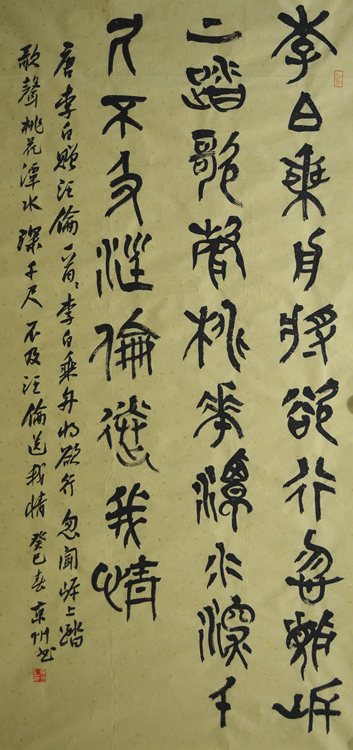 李白乘舟將欲行忽聞岸
上踏歌聲桃花潭水深千
尺不及汪倫送我情
唐李白贈汪倫一首李白乘舟將欲行忽聞岸上踏
歌聲桃花潭水深千尺不及汪倫送我情癸巳春京州书